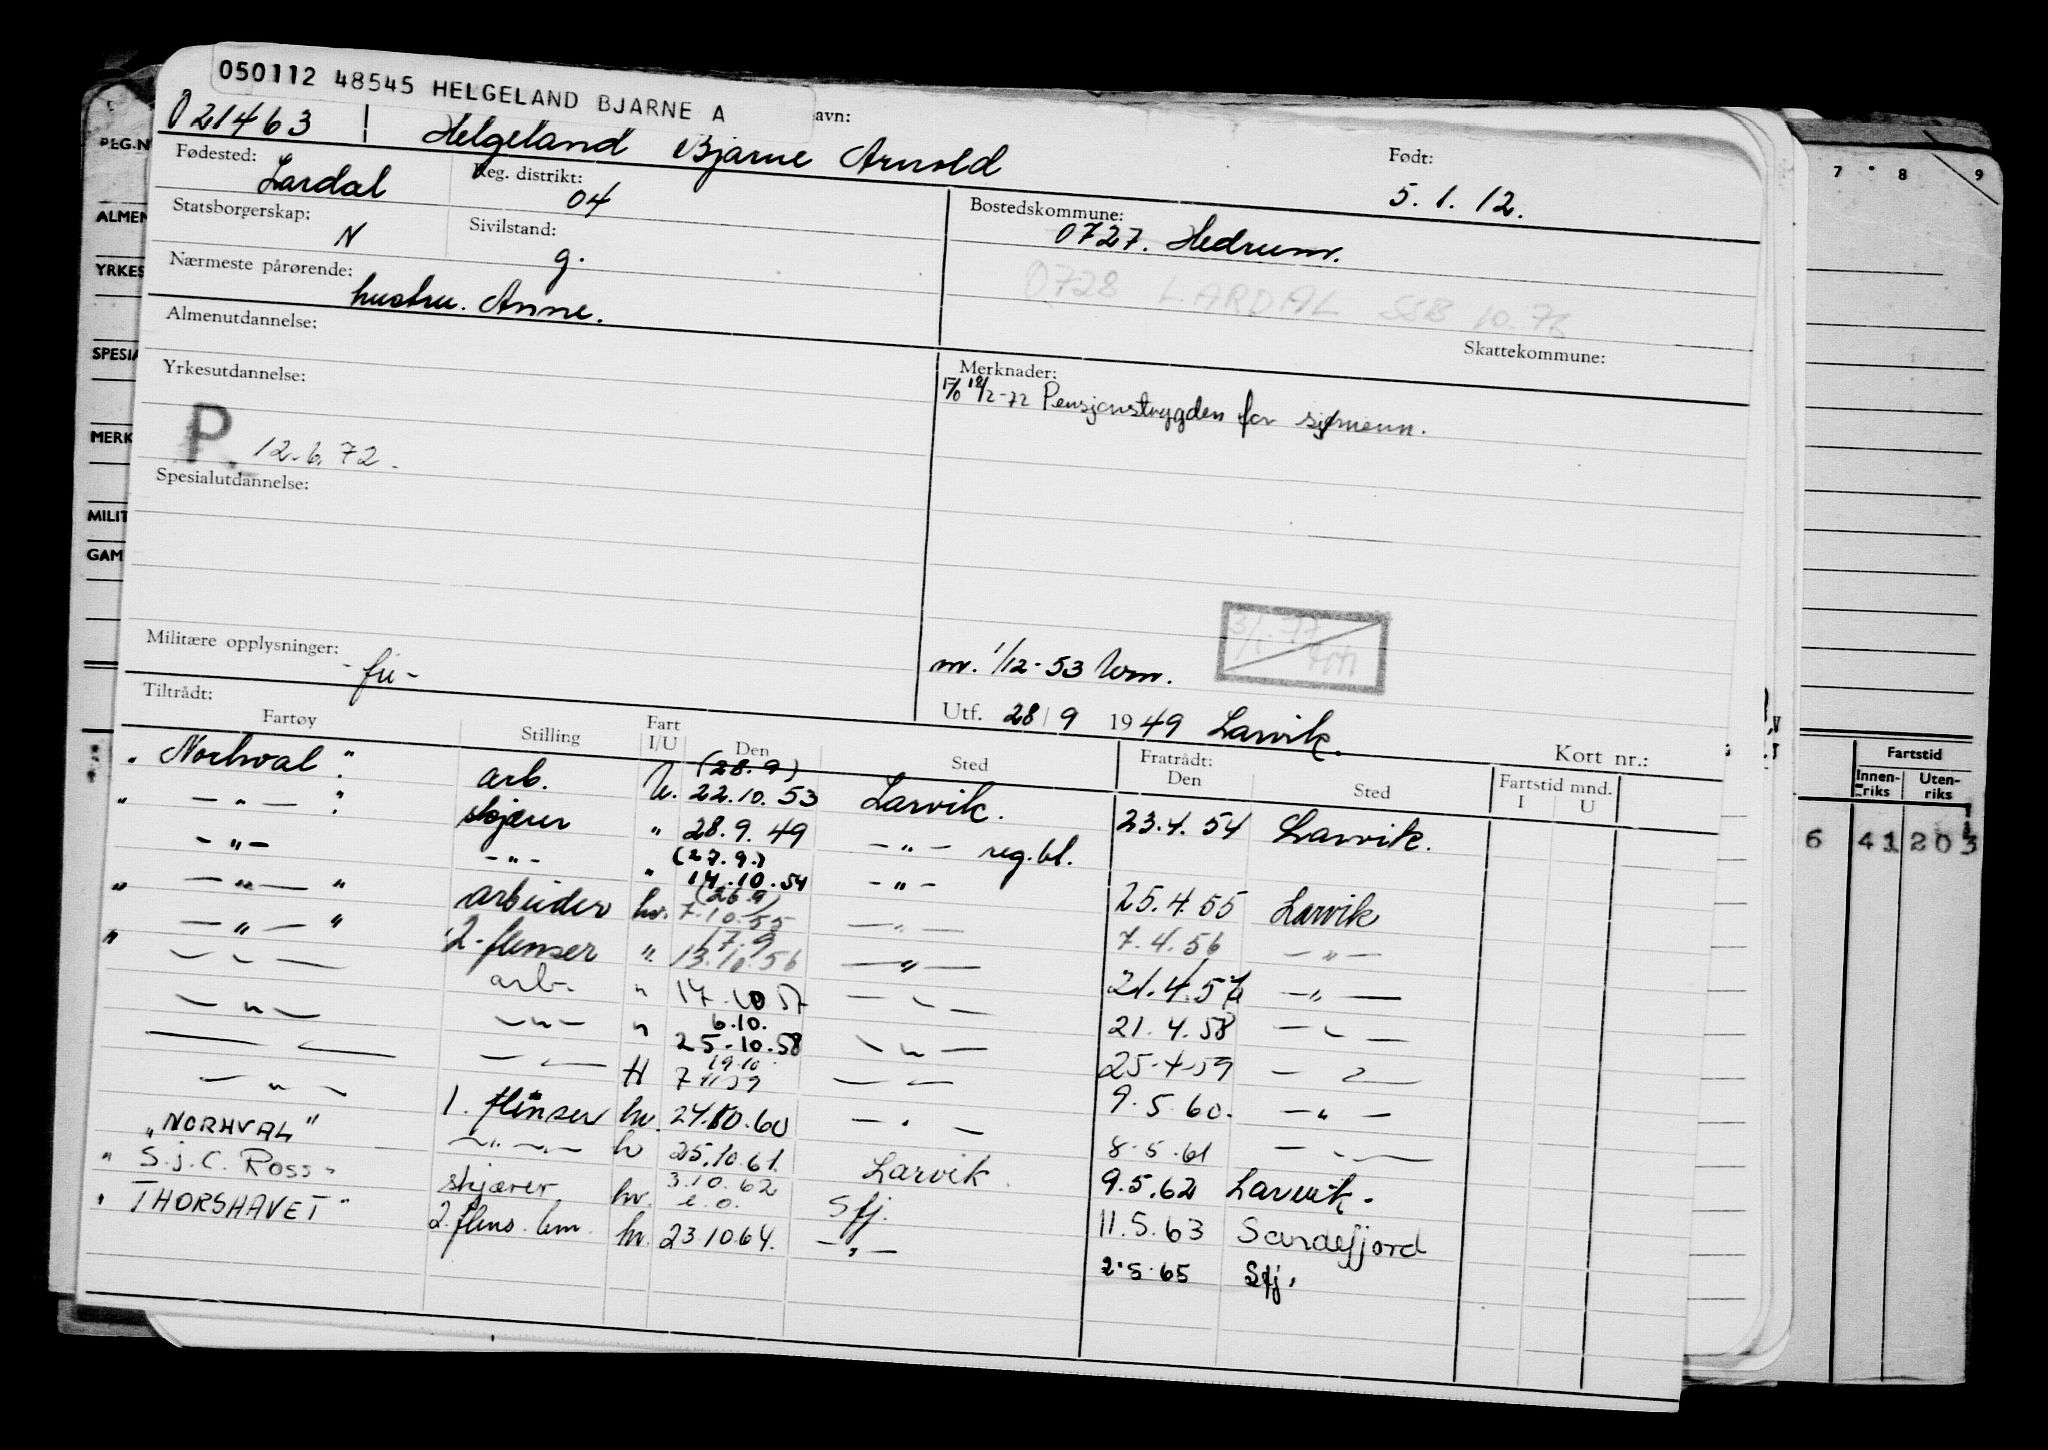 050112 48545 HELGELAND BJARNE A
avn:
021463 Helgeland Bjarne Arnold
Født:
5.1.12.
REG.N
Fødested:
Lardal
Reg. distrikt:
04
Bostedskommune:
0727. Hedrum.
ALMEN
Statsborgerskap:
N
Sivilstand:
g.
0728 LARDAL SSB 10.76
YRKES
Nærmeste pårørende:
hustru. Anne.
Skattekommune:
Almenutdannelse:
SPESIA
Yrkesutdannelse:
Merknader:
12/2-72 Pensjonstrygden for sjømenn.
MERK
P 12.6.72.
Spesialutdannelse:
MILIT
GAM
Militære opplysninger:
- fu -
m. 1/12-53 Wm.
3/1.77
Utf. 28/9 1949 Larvik.
Kort nr.:
Tiltrådt:
Fartøy Stilling Fart I/U Den Sted Fratrådt: Den Sted Fartstid mnd. I U
„ Norhval " arb. U. (28.9) 22.10.53 Larvik. 23.4.54 Larvik.
„ — " — " skjærer " 28.9.49 — " — reg.bl.
— " — — " — " (27.9.) 14.10.54 — " — 25.4.55 Larvik
„ — " — " arbeider hv. (26.9) 7.10.55 — " — 7.4.56 — " —
„ — " — " 2. flenser " 17.9 13.10.56 — " — 21.4.57 — " —
— " — arb. " 17.10 57 — " — 21.4.58 — " —
— " — — " — " 6.10. 25.10.58 — " — 25.4.59 — " —
— " — — " — H 19.10 7.11.59 — " — 9.5.60. — " —
— " — 1. flenser hv. 24.10.60 — " — 8.5.61 — " —
„NORHVAL" — " — h 25.10.61. Larvik 9.5.62 Larvik.
„ S.j.C. Ross " skjærer hv. 3.10.62 e.o. Sfj. 11.5.63 Sandefjord
„ THORSHAVET " 2. flens. lem. hv. 23.10.64. — " — 2.5.65 Sfj.
7 8 9
Fartstid
Innen-riks Uten-riks
6 41 203